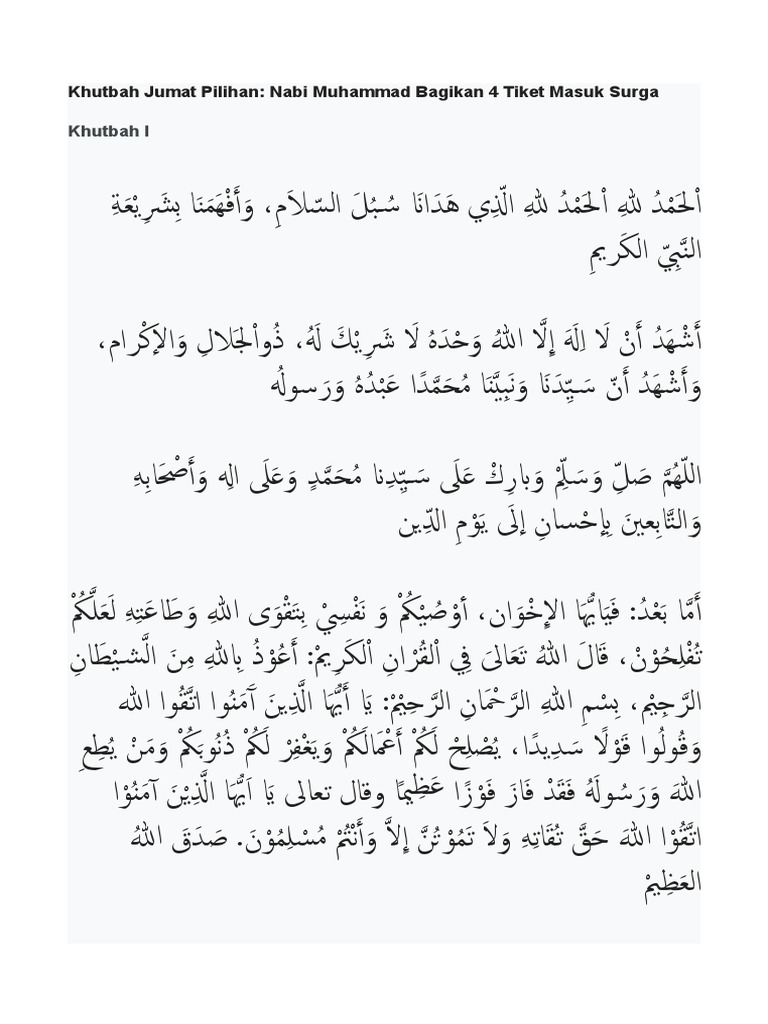 Khutbah Jumat Pilihan: Nabi Muhammad Bagikan 4 Tiket Masuk Surga
Khutbah I
اْلحَمْدُ للهِ اْلحَمْدُ للهِ الّذِي هَدَانَا سُبُلَ السّلاَمِ، وَأَفْهَمَنَا بِشَرِيْعَةِ
النَّبِيّ الكَريمِ
أَشْهَدُ أَنْ لَا اِلَهَ إِلَّا اللهُ وَحْدَهُ لَا شَرِيْكَ لَهُ، ذُواْلجَلالِ وَالإكْرام،
وَأَشْهَدُ أَنّ سَيِّدَنَا وَنَبِيَّنَا مُحَمَّدًا عَبْدُهُ وَرَسولُه
اللّهُمَّ صَلِّ وَسَلِّمْ وَبارِكْ عَلَى سَيِّدِنا مُحَمَّدٍ وَعَلَى الِه وَأَصْحَابِهِ
وَالتَّابِعينَ بِإحْسانِ إلَى يَوْمِ الدِّين
أَمَّا بَعْدُ: فَيَايُّهَا الإِخْوَان، أوْصُيْكُمْ وَ نَفْسِيْ بِتَقْوَى اللهِ وَطَاعَتِهِ لَعَلَّكُمْ
تُفْلِحُوْنْ، قَالَ اللهُ تَعَالىَ فِي اْلقُرْانِ اْلكَرِيمْ: أَعُوْذُ بِاللهِ مِنَ الَّشيْطَانِ
الرَّجِيْم، بِسْمِ اللهِ الرَّحْمَانِ الرَّحِيْمْ: يَا أَيُّهَا الَّذِينَ آَمَنُوا اتَّقُوا الله
وَقُولُوا قَوْلًا سَدِيدًا، يُصْلِحْ لَكُمْ أَعْمَالَكُمْ وَيَغْفِرْ لَكُمْ ذُنُوبَكُمْ وَمَنْ يُطِعِ
اللهَ وَرَسُولَهُ فَقَدْ فَازَ فَوْزًا عَظِيمًا وقال تعالى يَا اَيُّهَا الَّذِيْنَ آمَنُوْا
اتَّقُوْا اللهَ حَقَّ تُقَاتِهِ وَلاَ تَمُوْتُنَّ إِلاَّ وَأَنْتُمْ مُسْلِمُوْنَ. صَدَقَ اللهُ
العَظِيمْ